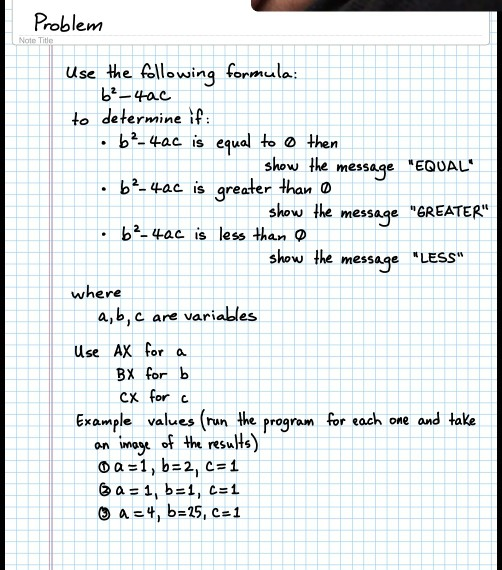 Problem
Note Title
Use the following formula:
b²-4ac
to determine if:
• b²-4ac is equal to 0 then
show the message "EQUAL"
• b²-4ac is greater than 0
show the message "GREATER"
• b²-4ac is less than 0
show the message "LESS"
where
a,b,c are variables
Use AX for a
BX for b
CX for c
Example values (run the program for each one and take
an image of the results)
① a=1, b=2, c=1
② a=1, b=1, c=1
③ a=4, b=25, c=1